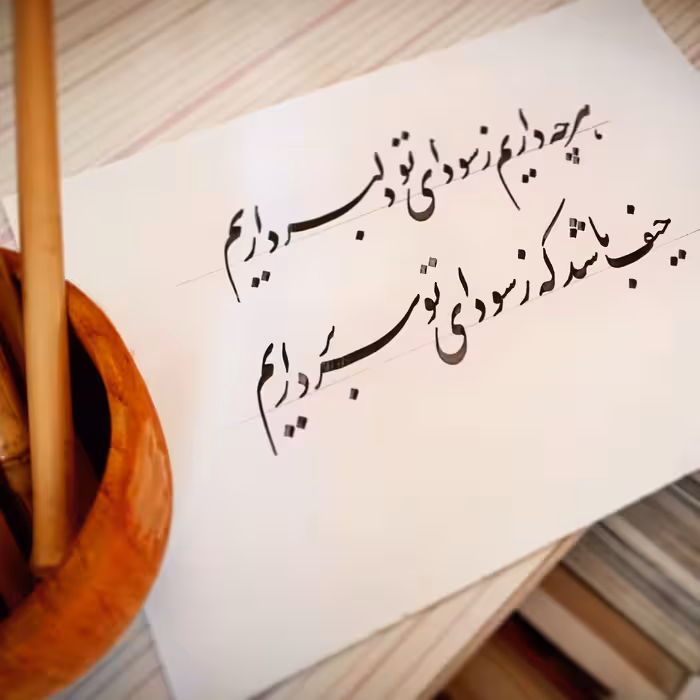 هرچه داریم ز سودای تو دلبر داریم
حیف باشد که ز سودای تو سر برداریم